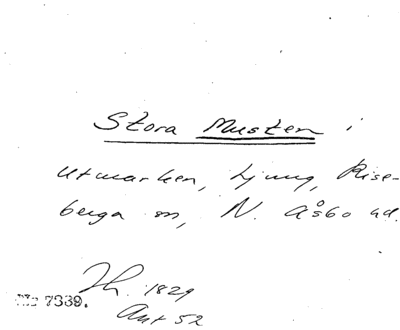 Stora Musten i
utmarken, Ljung, Rise-
berga sn, N. Åsbo hd.
Lh. 1829
No 7339.
Akt 52